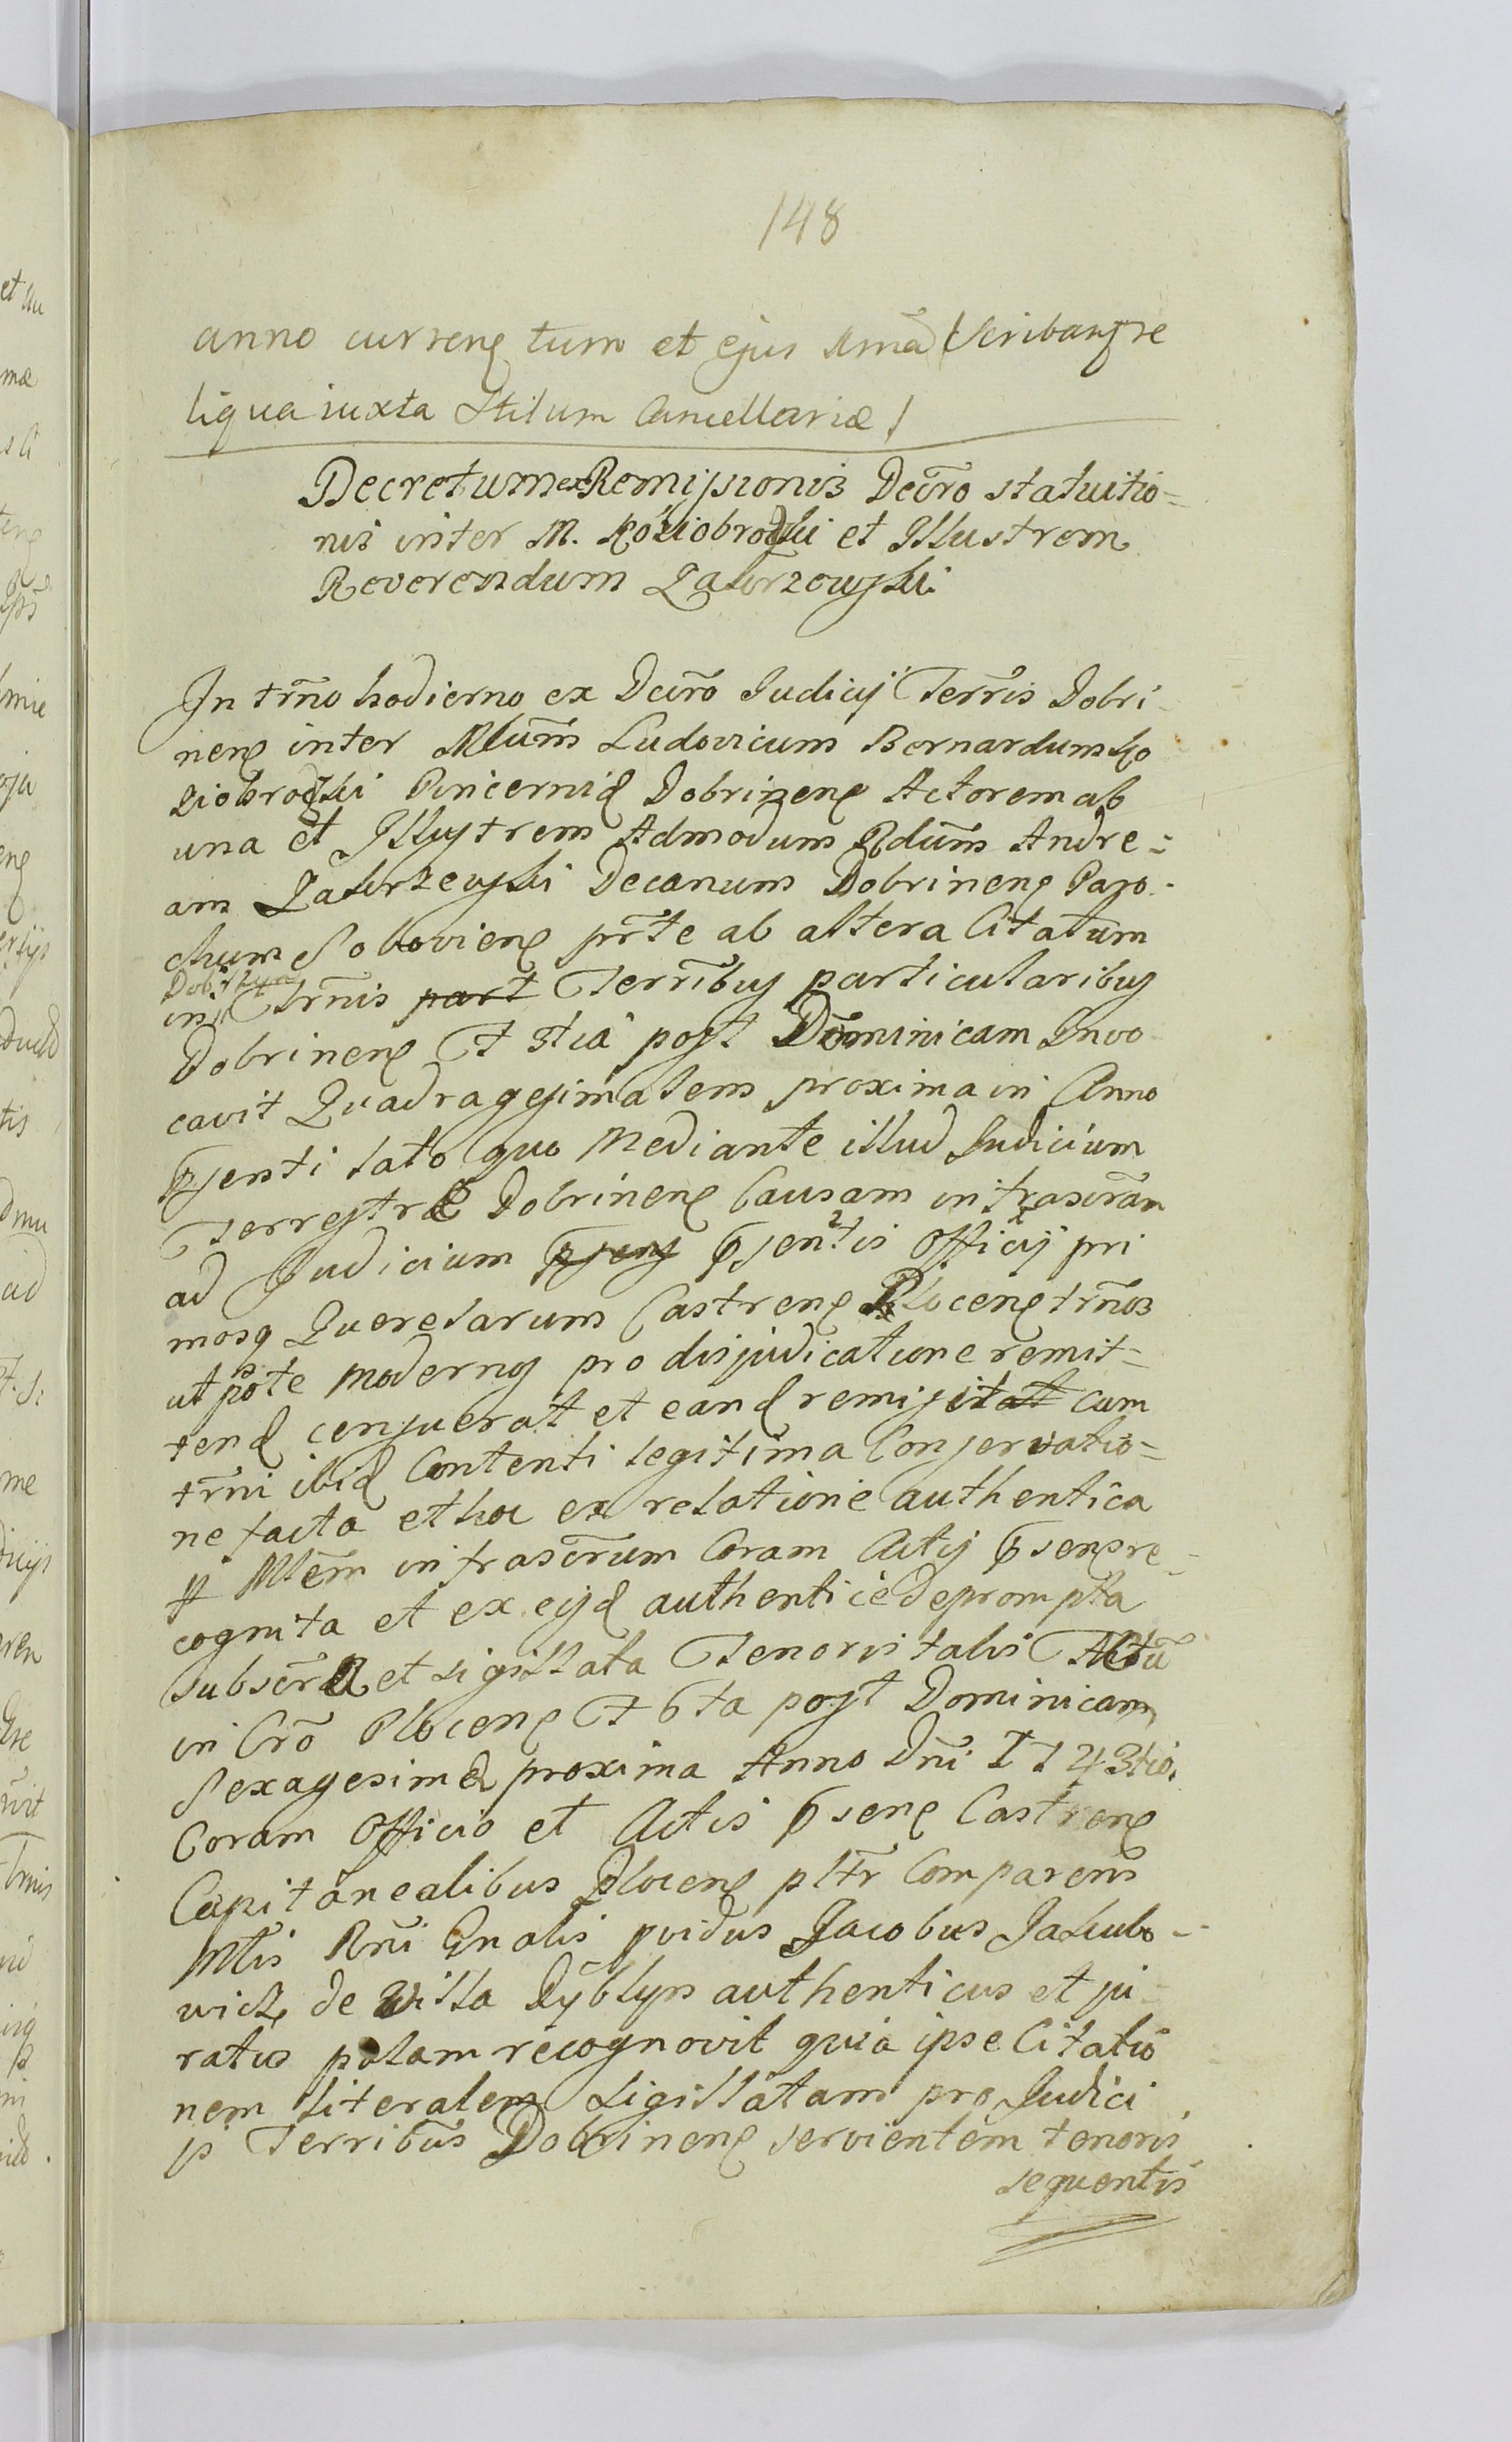 148
anno currenę tum et ejus Ama (Scribantre
liqua iuxta Stilum Cancellariæ)
Decretum ex Remissionis Decro statuitio=
nis inter M. Koziobrodzki et Illustrem
Reverendum Zakrzewski
In trno hodierno ex Decro Judicij Terris Dobri
nenę inter Mlum Ludovicum Bernardum Ko
ziobrodzki Pincernid Dobrinenę Actorem ab
una et Illustrem Admodum Rdum Andre=
am Zakrzewski Decanum Dobrinenę Paro-
chum Sobovienę prte ab altera Citatum
in Trnis part Terribus particularibus
Dobrinenę F 3tia post Dominicam Invo
cavit Quadragesimalem proxima in Anno
psenti lato quo Mediante illud Judicium
Terrestre Dobrinenę Causam infrascram
ad Judicium psens psentis Officij pri
mosq Querelarum Castrenę Plocenę trnos
utpote modernos pro disjudicatione remit=
tend censuerat et eand remisitat cum
trni ibid Contenti legitima Conservatio=
ne facta et hoc ex relatione authentica
p Mlem infrascrum Coram Actis psensre-
cognita et ex eisd authentice deprompta
subscra et sigillata Tenoris talis Actu
in Cro Plocenę F 6ta post Dominicam
Sexagesimæ proxima Anno Dni 1743tio.
Coram Officio et Actis psenę Castrenę
Capitanealibus Plocenę pltr Comparens
Mtis Rni Gnalis pvidus Jacobus Jakubo-
wicz de Villa Dyblyn authenticus et ju
ratus palam recognovit quia ipse Citatio
nem literalem Sigillatam pro Judici
js Terribus Dobrinenę servientem tenoris
sequentis